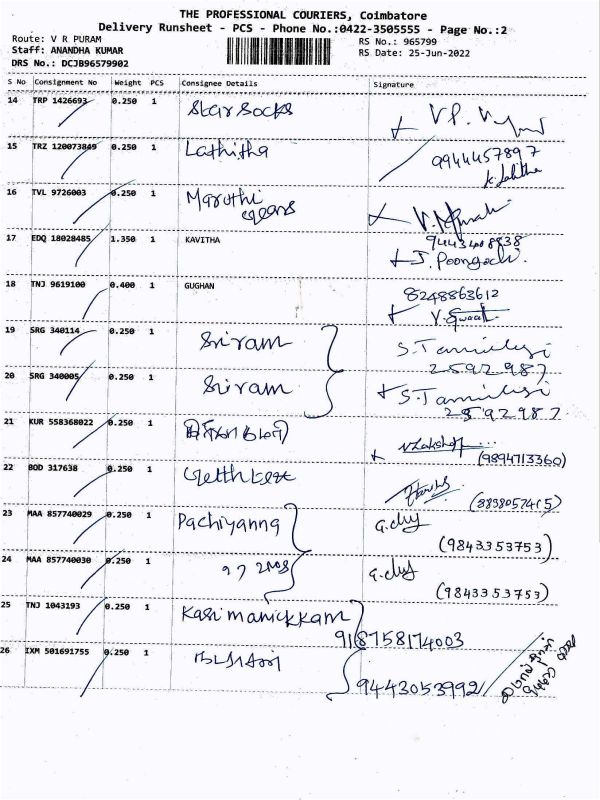 THE PROFESSIONAL COURIERS, Coimbatore
Delivery Runsheet - PCS - Phone No.:0422-3505555 - Page No.:2
Route: V R PURAM RS No.: 965799
Staff: ANANDHA KUMAR RS Date: 25-Jun-2022
DRS No.: DCJB96579902
S No Consignment No Weight PCS Consignee Details Signature
14 TRP 1426693 0.250 1 Star Socks
15 TRZ 120073849 0.250 1 Lathitha 9944457897
K. Lalitha
16 TVL 9726003 0.250 1 Maruthi
17 EDQ 18028485 1.350 1 KAVITHA
J. Poongodi.
18 TNJ 9619100 0.400 1 GUGHAN 8248863612
19 SRG 340114 0.250 1 Sriram
2592987
20 SRG 340005 0.250 1 Sriram
2592987
21 KUR 558368022 0.250 1 (9894713360)
22 BOD 317638 0.250 1
23 MAA 857740029 0.250 1 Pachiyanna
(9843353753)
24 MAA 857740030 0.250 1
(9843353753)
25 TNJ 1043193 0.250 1 Kasi manickkam
918758174003
26 IXM 501691755 0.250 1 நடராசன்
9443053992